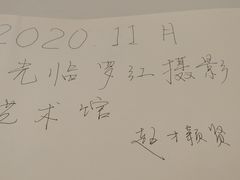 2020.11月
光临罗红摄影
艺术馆
赵 颖贤